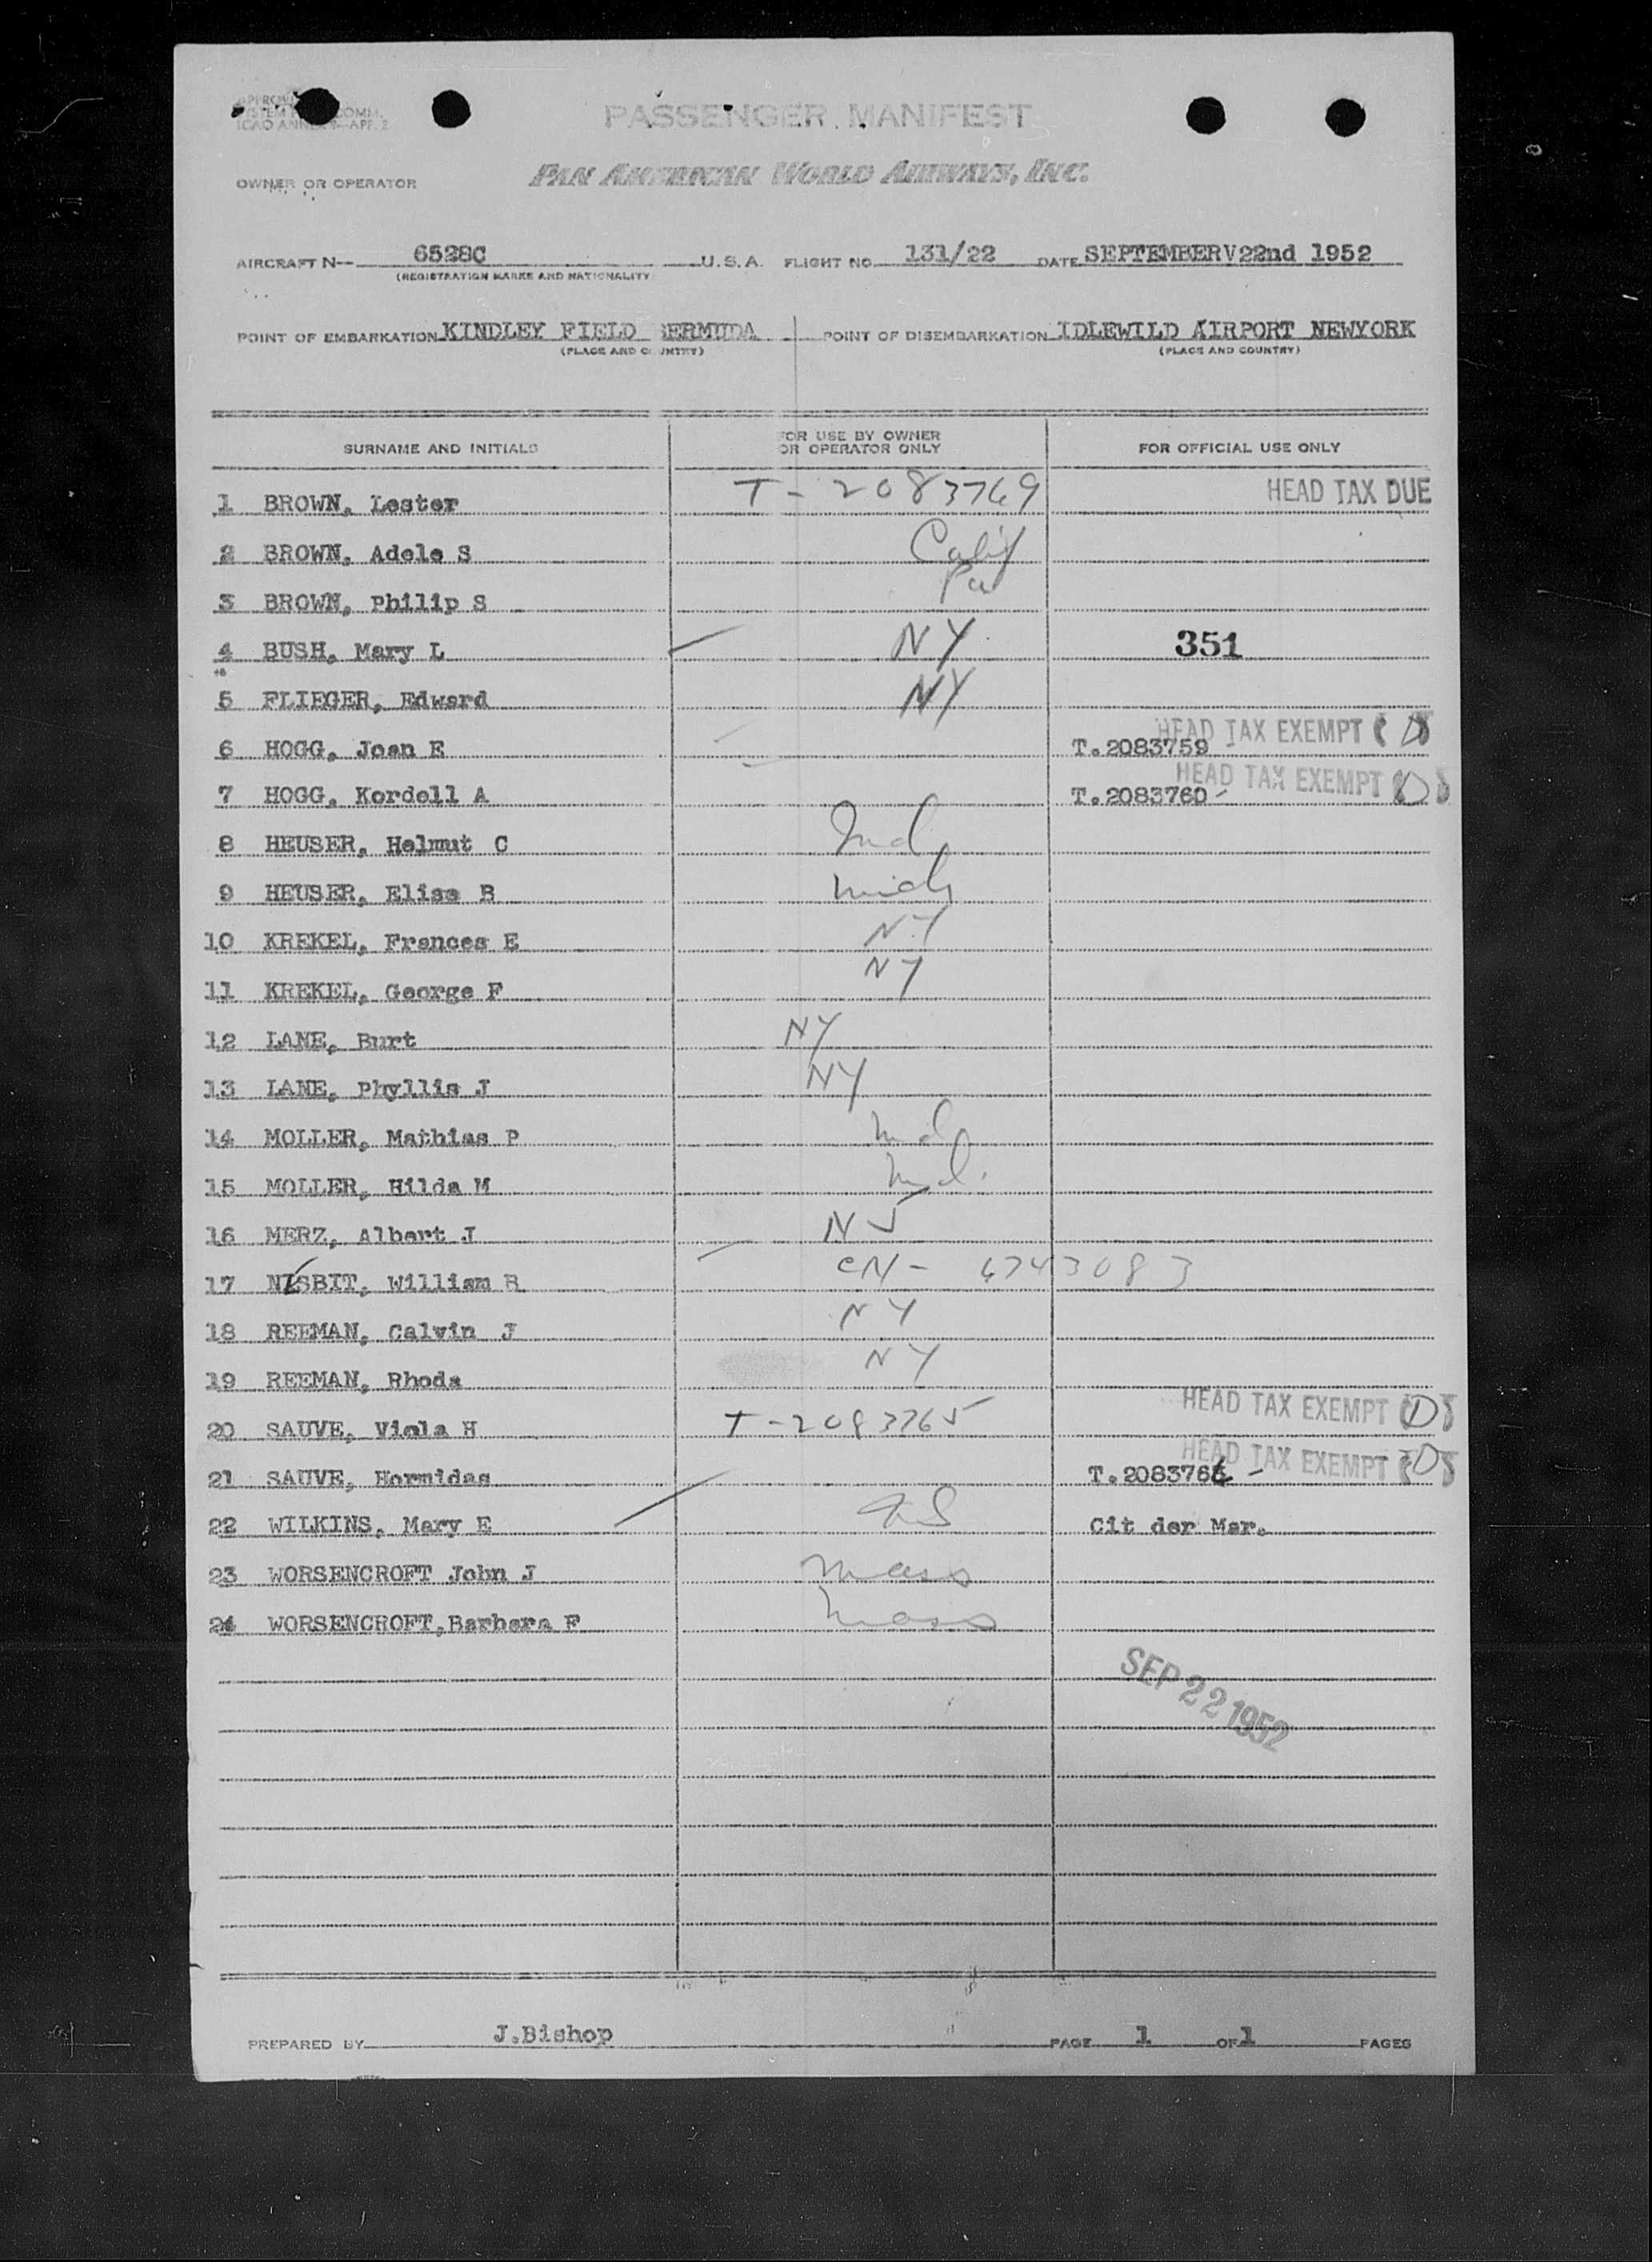 PASSENGER MANIFEST
ICAO ANNEX 9—APP. 2
OWNER OR OPERATOR PAN AMERICAN WORLD AIRWAYS, INC.
AIRCRAFT N-- 6528C U.S.A. FLIGHT NO. 131/22 DATE SEPTEMBERV22nd 1952
(REGISTRATION MARKS AND NATIONALITY)
POINT OF EMBARKATION KINDLEY FIELD BERMUDA POINT OF DISEMBARKATION IDLEWILD AIRPORT NEWYORK
(PLACE AND COUNTRY) (PLACE AND COUNTRY)
SURNAME AND INITIALS FOR USE BY OWNER OR OPERATOR ONLY FOR OFFICIAL USE ONLY
1 BROWN, Lester T-2083769 HEAD TAX DUE
2 BROWN, Adele S Calif
3 BROWN, Philip S Pa
4 BUSH, Mary L NY 351
5 FLIEGER, Edward NY
6 HOGG, Joan E T.2083759 - HEAD TAX EXEMPT
7 HOGG, Kordell A T.2083760 - HEAD TAX EXEMPT
8 HEUSER, Helmut C Ind
9 HEUSER, Elisa B Mich
10 KREKEL, Frances E N.Y
11 KREKEL, George F NY
12 LANE, Burt NY
13 LANE, Phyllis J NY
14 MOLLER, Mathias P Md
15 MOLLER, Hilda M Md.
16 MERZ, Albert J NJ
17 NISBIT, William R CN- 6743083
18 REEMAN, Calvin J NY
19 REEMAN, Rhoda NY
20 SAUVE, Viola H T-2083765 HEAD TAX EXEMPT
21 SAUVE, Hormidas T.2083766 - HEAD TAX EXEMPT
22 WILKINS, Mary E Cit der Mar.
23 WORSENCROFT John J Mass
24 WORSENCROFT,Barbara F Mass
SEP 22 1952
PREPARED BY J.Bishop PAGE 1 OF 1 PAGES